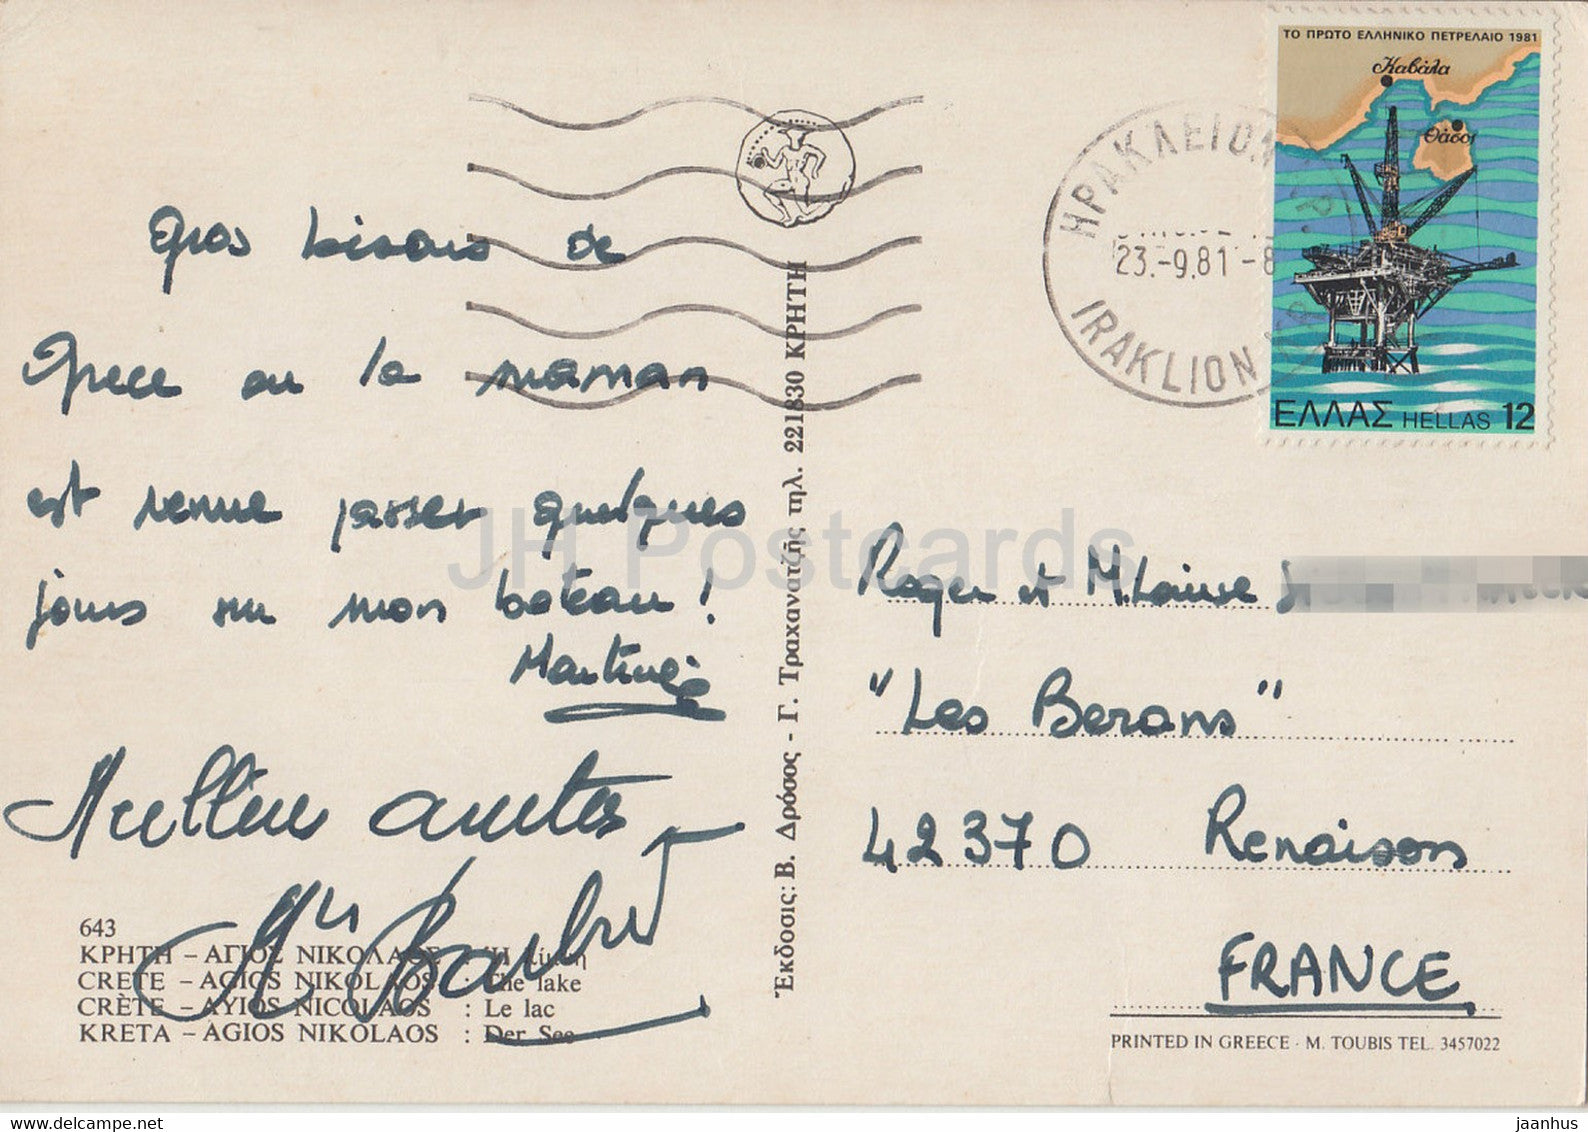 ΤΟ ΠΡΩΤΟ ΕΛΛΗΝΙΚΟ ΠΕΤΡΕΛΑΙΟ 1981
Καβάλα
Θάσος
ΕΛΛΑΣ HELLAS 12
ΗΡΑΚΛΕΙΟΝ
23.-9.81-8
IRAKLION
Gros bisous de
Grèce où la maman
est venue passer quelques
jours sur mon bateau !
Martine
Meilleures amitiés
643
ΚΡΗΤΗ – ΑΓΙΟΣ ΝΙΚΟΛΑΟΣ : Ἡ λίμνη
CRETE – AGIOS NIKOLAOS : The lake
CRÈTE – AYIOS NICOLAOS : Le lac
KRETA – AGIOS NIKOLAOS : Der See
Ἔκδοσις: Β. Δρόσος - Γ. Τραχανατζῆς τηλ. 221830 ΚΡΗΤΗ
Roger et M.Louise
"Les Berans"
42370 Renaison
FRANCE
PRINTED IN GREECE · M. TOUBIS TEL. 3457022
JH Postcards
www.delcampe.net
jaanhus